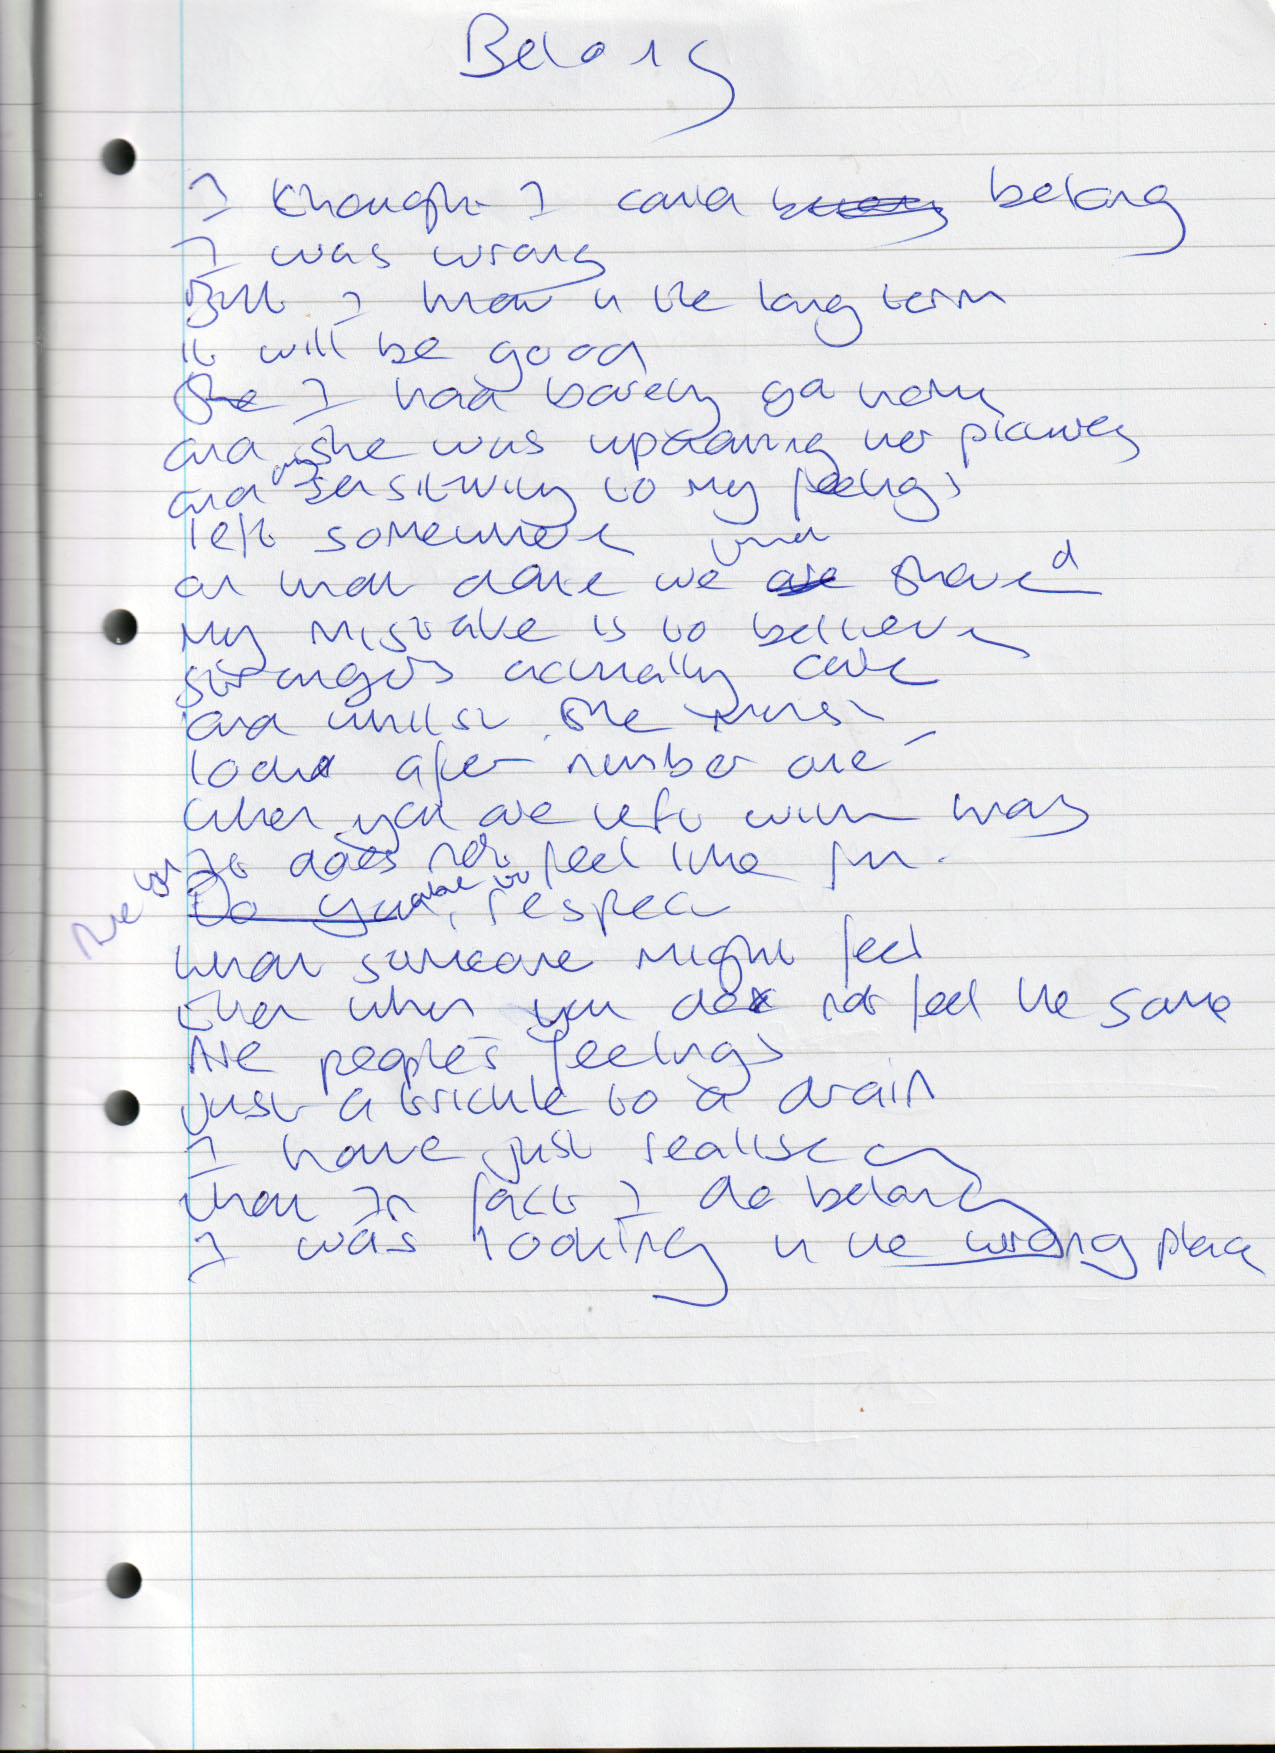 Belong
I thought I could belong
I was wrong
But I know in the long term
it will be good
I had barely got home
and she was updating her pictures
and any sensitivity to my feelings
left somewhere
on that date we shared
My mistake is to believe
strangers actually care
and whilst one must
look after number one
When you are left with
It does not feel like fun.
to respect
what someone might feel
then when you do not feel the same
Are people's feelings
just a trickle to a drain
I have just realised
that in fact I do belong
I was looking in the wrong place